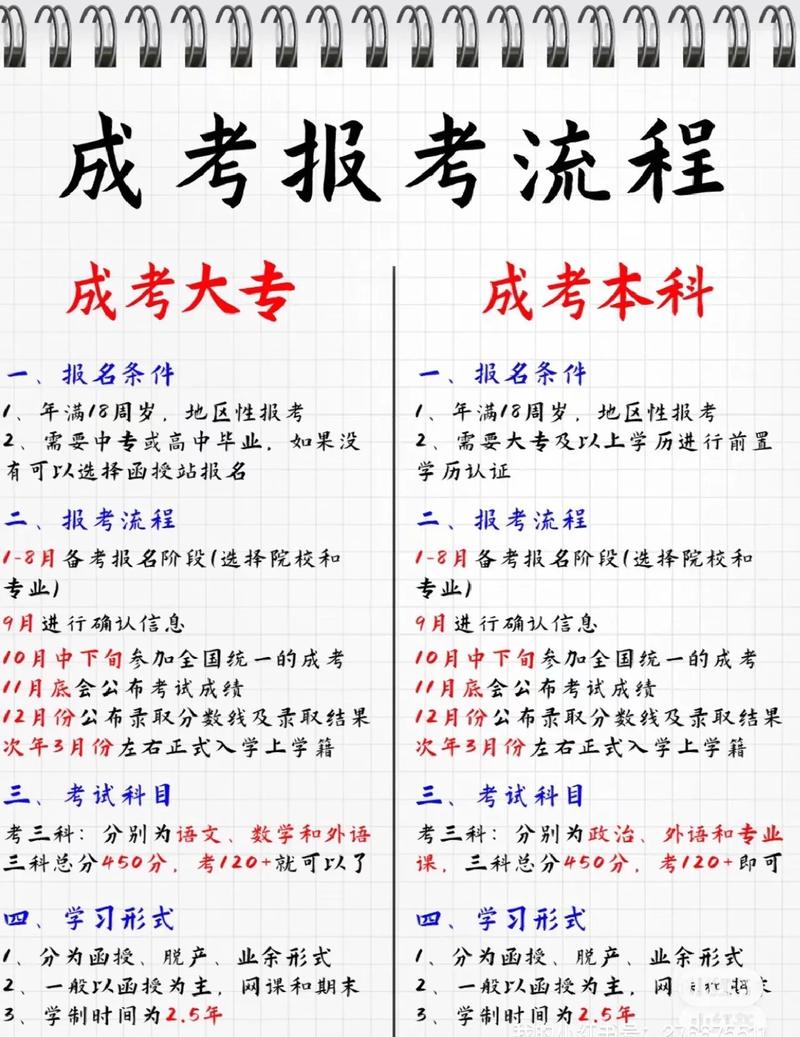 成考报考流程
成考大专
一、报名条件
1、年满18周岁，地区性报考
2、需要中专或高中毕业，如果没
有可以选择函授站报名
二、报考流程
1-8月备考报名阶段(选择院校和
专业)
9月进行确认信息
10月中下旬参加全国统一的成考
11月底会公布考试成绩
12月份公布录取分数线及录取结果
次年3月份左右正式入学上学籍
三、考试科目
考三科：分别为语文、数学和外语
三科总分450分，考120+就可以了
四、学习形式
1、分为函授、脱产、业余形式
2、一般以函授为主，网课和期末
3、学制时间为2.5年
成考本科
一、报名条件
1、年满18周岁，地区性报考
2、需要大专及以上学历进行前置
学历认证
二、报考流程
1-8月备考报名阶段(选择院校和
专业)
9月进行确认信息
10月中下旬参加全国统一的成考
11月底会公布考试成绩
12月份公布录取分数线及录取结果
次年3月份左右正式入学上学籍
三、考试科目
考三科：分别为政治、外语和专业
课，三科总分450分，考120+即可
四、学习形式
1、分为函授、脱产、业余形式
2、一般以函授为主，网课和期末
3、学制时间为2.5年
小红书